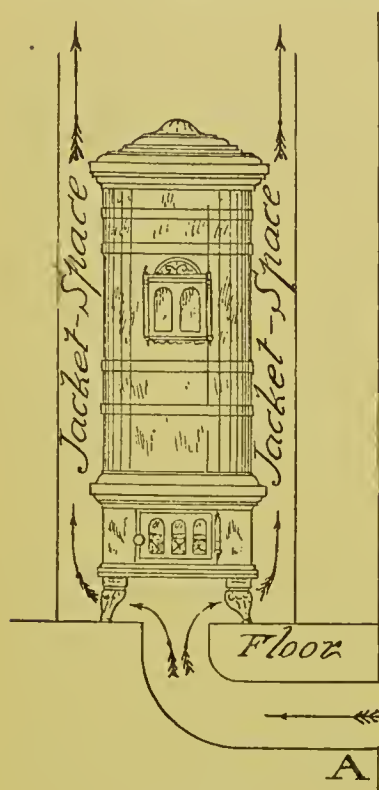 Jacket-Space
Jacket-Space
Floor
A